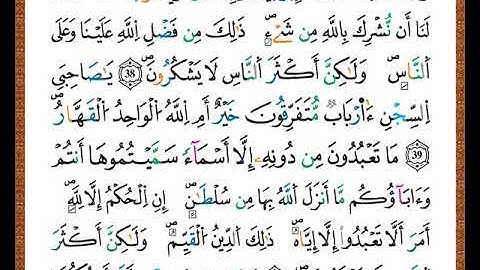 لَنَا أَن نُّشْرِكَ بِاللَّهِ مِن شَيْءٍ ذَٰلِكَ مِن فَضْلِ اللَّهِ عَلَيْنَا وَعَلَى
النَّاسِ وَلَٰكِنَّ أَكْثَرَ النَّاسِ لَا يَشْكُرُونَ 38 يَٰصَٰحِبَيِ
السِّجْنِ ءَأَرْبَابٌ مُّتَفَرِّقُونَ خَيْرٌ أَمِ اللَّهُ الْوَاحِدُ الْقَهَّارُ
39 مَا تَعْبُدُونَ مِن دُونِهِ إِلَّا أَسْمَآءً سَمَّيْتُمُوهَا أَنتُمْ
وَءَابَآؤُكُم مَّا أَنزَلَ اللَّهُ بِهَا مِن سُلْطَٰنٍ إِنِ الْحُكْمُ إِلَّا لِلَّهِ
أَمَرَ أَلَّا تَعْبُدُوا إِلَّا إِيَّاهُ ذَٰلِكَ الدِّينُ الْقَيِّمُ وَلَٰكِنَّ أَكْثَرَ